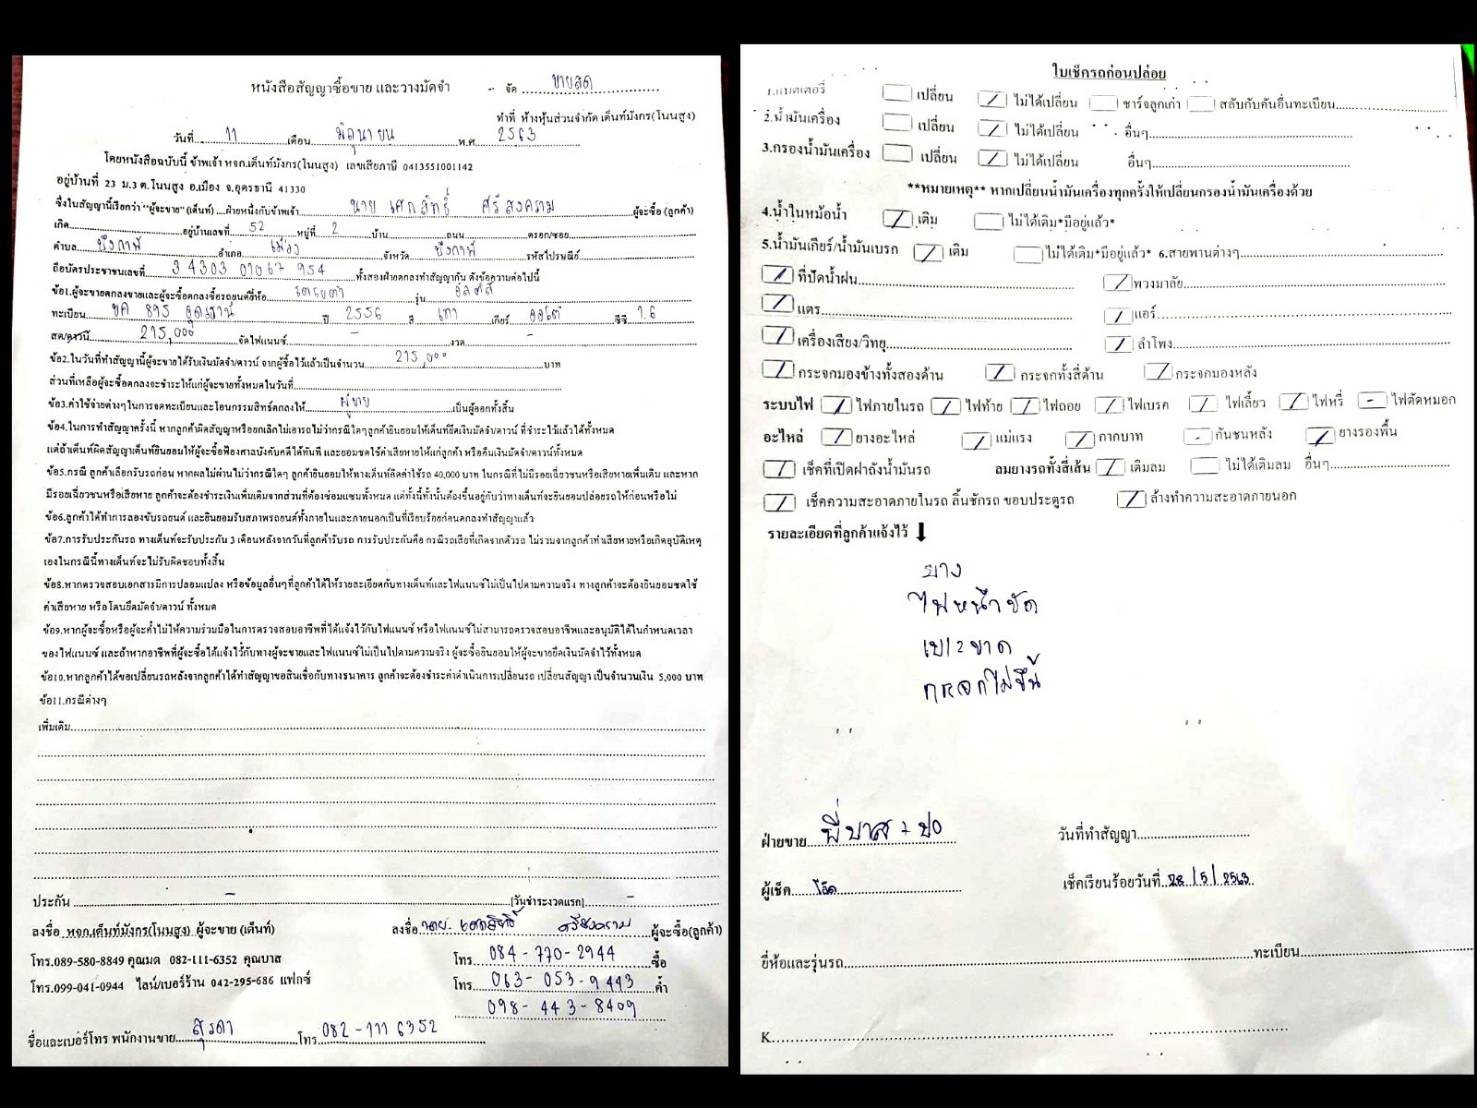 หนังสือสัญญาซื้อขาย และวางมัดจำ - จัด ขายสด
ทำที่ ห้างหุ้นส่วนจำกัด เต็นท์มังกร(โนนสูง)
วันที่ 11 เดือน มิถุนายน พ.ศ. 2563
โดยหนังสือฉบับนี้ ข้าพเจ้า หจก.เต็นท์มังกร(โนนสูง) เลขเสียภาษี 0413551001142
อยู่บ้านที่ 23 ม.3 ต.โนนสูง อ.เมือง จ.อุดรธานี 41330
ซึ่งในสัญญานี้เรียกว่า"ผู้จะขาย"(เต็นท์)....ฝ่ายหนึ่งกับข้าพเจ้า นาย เศกสิทธิ์ ศรีสงคราม ผู้จะซื้อ (ลูกค้า)
เกิด อยู่บ้านเลขที่ 52 หมู่ที่ 2 บ้าน ถนน ตรอก/ซอย
ตำบล บึงกาฬ อำเภอ เมือง จังหวัด บึงกาฬ รหัสไปรษณีย์
ถือบัตรประชาชนเลขที่ 3 4303 01067 954 ทั้งสองฝ่ายตกลงทำสัญญากัน ดังข้อความต่อไปนี้
ข้อ1.ผู้จะขายตกลงขายและผู้จะซื้อตกลงซื้อรถยนต์ยี่ห้อ รุ่น อัลติส
ทะเบียน ขค 895 อุดรธานี ปี 2556 สี เทา เกียร์ ออโต้ ซีซี 1.6
สด/ดาวน์ 215,000 จัดไฟแนนซ์ - งวด -
ข้อ2.ในวันที่ทำสัญญานี้ผู้จะขายได้รับเงินมัดจำ/ดาวน์ จากผู้ซื้อไว้แล้วเป็นจำนวน 215,000 บาท
ส่วนที่เหลือผู้จะซื้อตกลงจะชำระให้แก่ผู้จะขายทั้งหมดในวันที่
ข้อ3.ค่าใช้จ่ายต่างๆในการจดทะเบียนและโอนกรรมสิทธิ์ตกลงให้ ผู้ขาย เป็นผู้ออกทั้งสิ้น
ข้อ4.ในการทำสัญญาครั้งนี้ หากลูกค้าผิดสัญญาหรือยกเลิกไม่เอารถ ไม่ว่ากรณีใดๆลูกค้ายินยอมให้เต็นท์ยึดเงินมัดจำ/ดาวน์ ที่ชำระไว้แล้วได้ทั้งหมด
แต่ถ้าเต็นท์ผิดสัญญาเต็นท์ยินยอมให้ผู้จะซื้อฟ้องศาลบังคับคดีได้ทันที และยอมชดใช้ค่าเสียหายให้แก่ลูกค้า หรือคืนเงินมัดจำ/ดาวน์ทั้งหมด
ข้อ5.กรณี ลูกค้าเลือกรับรถก่อน หากผลไม่ผ่านไม่ว่ากรณีใดๆ ลูกค้ายินยอมให้ทางเต็นท์คิดค่าใช้รถ 40,000 บาท ในกรณีที่ไม่มีรอยเฉี่ยวชนหรือเสียหายเพิ่มเติม และหาก
มีรอยเฉี่ยวชนหรือเสียหาย ลูกค้าจะต้องชำระเงินเพิ่มเติมจากส่วนที่ต้องซ่อมแซมทั้งหมด แต่ทั้งนี้ทั้งนั้นต้องขึ้นอยู่กับว่าทางเต็นท์จะยินยอมปล่อยรถให้ก่อนหรือไม่
ข้อ6.ลูกค้าได้ทำการลองขับรถยนต์ และยินยอมรับสภาพรถยนต์ทั้งภายในและภายนอกเป็นที่เรียบร้อยก่อนตกลงทำสัญญาแล้ว
ข้อ7.การรับประกันรถ ทางเต็นท์จะรับประกัน 3 เดือนหลังจากวันที่ลูกค้ารับรถ การรับประกันคือ กรณีรถเสียที่เกิดจากตัวรถ ไม่รวมจากลูกค้าทำเสียหายหรือเกิดอุบัติเหตุ
เองในกรณีนี้ทางเต็นท์จะไม่รับผิดชอบทั้งสิ้น
ข้อ8.หากตรวจสอบเอกสารมีการปลอมแปลง หรือข้อมูลอื่นๆที่ลูกค้าได้ให้รายละเอียดกับทางเต็นท์และไฟแนนซ์ไม่เป็นไปตามความจริง ทางลูกค้าจะต้องยินยอมชดใช้
ค่าเสียหาย หรือ โดนยึดมัดจำ/ดาวน์ ทั้งหมด
ข้อ9.หากผู้จะซื้อหรือผู้จะค้ำไม่ให้ความร่วมมือในการตรวจสอบอาชีพที่ได้แจ้งไว้กับไฟแนนซ์ หรือไฟแนนซ์ไม่สามารถตรวจสอบอาชีพและอนุมัติได้ในกำหนดเวลา
ของไฟแนนซ์ และถ้าหากอาชีพที่ผู้จะซื้อได้แจ้งไว้กับทางผู้จะขายและไฟแนนซ์ไม่เป็นไปตามความจริง ผู้จะซื้อยินยอมให้ผู้จะขายยึดเงินมัดจำไว้ทั้งหมด
ข้อ10.หากลูกค้าได้ขอเปลี่ยนรถหลังจากลูกค้าได้ทำสัญญาขอสินเชื่อกับทางธนาคาร ลูกค้าจะต้องชำระค่าดำเนินการเปลี่ยนรถ เปลี่ยนสัญญา เป็นจำนวนเงิน 5,000 บาท
ข้อ11.กรณีต่างๆ
เพิ่มเติม
ประกัน - [วันชำระงวดแรก] -
ลงชื่อ หจก.เต็นท์มังกร(โนนสูง) ผู้จะขาย (เต็นท์) ลงชื่อ นาย เศกสิทธิ์ ศรีสงคราม ผู้จะซื้อ(ลูกค้า)
โทร.089-580-8849 คุณมด 082-111-6352 คุณบาส โทร. 084-770-2944 ซื้อ
โทร.099-041-0944 ไลน์/เบอร์ร้าน 042-295-686 แฟกซ์ โทร. 063-053-9443 ค้ำ
098-443-8409
ชื่อและเบอร์โทร พนักงานขาย สุรดา โทร. 082-111 6352
ใบเช็กรถก่อนปล่อย
1.แบตเตอรี่ เปลี่ยน / ไม่ได้เปลี่ยน ชาร์จลูกเก่า สลับกับคันอื่นทะเบียน
2.น้ำมันเครื่อง เปลี่ยน / ไม่ได้เปลี่ยน อื่นๆ
3.กรองน้ำมันเครื่อง เปลี่ยน / ไม่ได้เปลี่ยน อื่นๆ
**หมายเหตุ** หากเปลี่ยนน้ำมันเครื่องทุกครั้งให้เปลี่ยนกรองน้ำมันเครื่องด้วย
4.น้ำในหม้อน้ำ / เติม ไม่ได้เติม*มีอยู่แล้ว*
5.น้ำมันเกียร์/น้ำมันเบรก / เติม ไม่ได้เติม*มีอยู่แล้ว* 6.สายพานต่างๆ
/ ที่ปัดน้ำฝน / พวงมาลัย
/ แตร / แอร์
/ เครื่องเสียง/วิทยุ / ลำโพง
/ กระจกมองข้างทั้งสองด้าน / กระจกทั้งสี่ด้าน / กระจกมองหลัง
ระบบไฟ / ไฟภายในรถ / ไฟท้าย / ไฟถอย / ไฟเบรค / ไฟเลี้ยว / ไฟหรี่ - ไฟตัดหมอก
อะไหล่ / ยางอะไหล่ / แม่แรง / กากบาท - กันชนหลัง / ยางรองพื้น
/ เช็คที่เปิดฝาถังน้ำมันรถ ลมยางรถทั้งสี่เส้น / เติมลม ไม่ได้เติมลม อื่นๆ
/ เช็คความสะอาดภายในรถ ลิ้นชักรถ ขอบประตูรถ / ล้างทำความสะอาดภายนอก
รายละเอียดที่ลูกค้าแจ้งไว้
ยาง
ไฟหน้าขัด
เบาะขาด
กระจกไม่ขึ้น
ฝ่ายขาย พี่บาส + ปอ วันที่ทำสัญญา
ผู้เช็ค เช็คเรียบร้อยวันที่ 28/5/2563
ยี่ห้อและรุ่นรถ ทะเบียน
K.